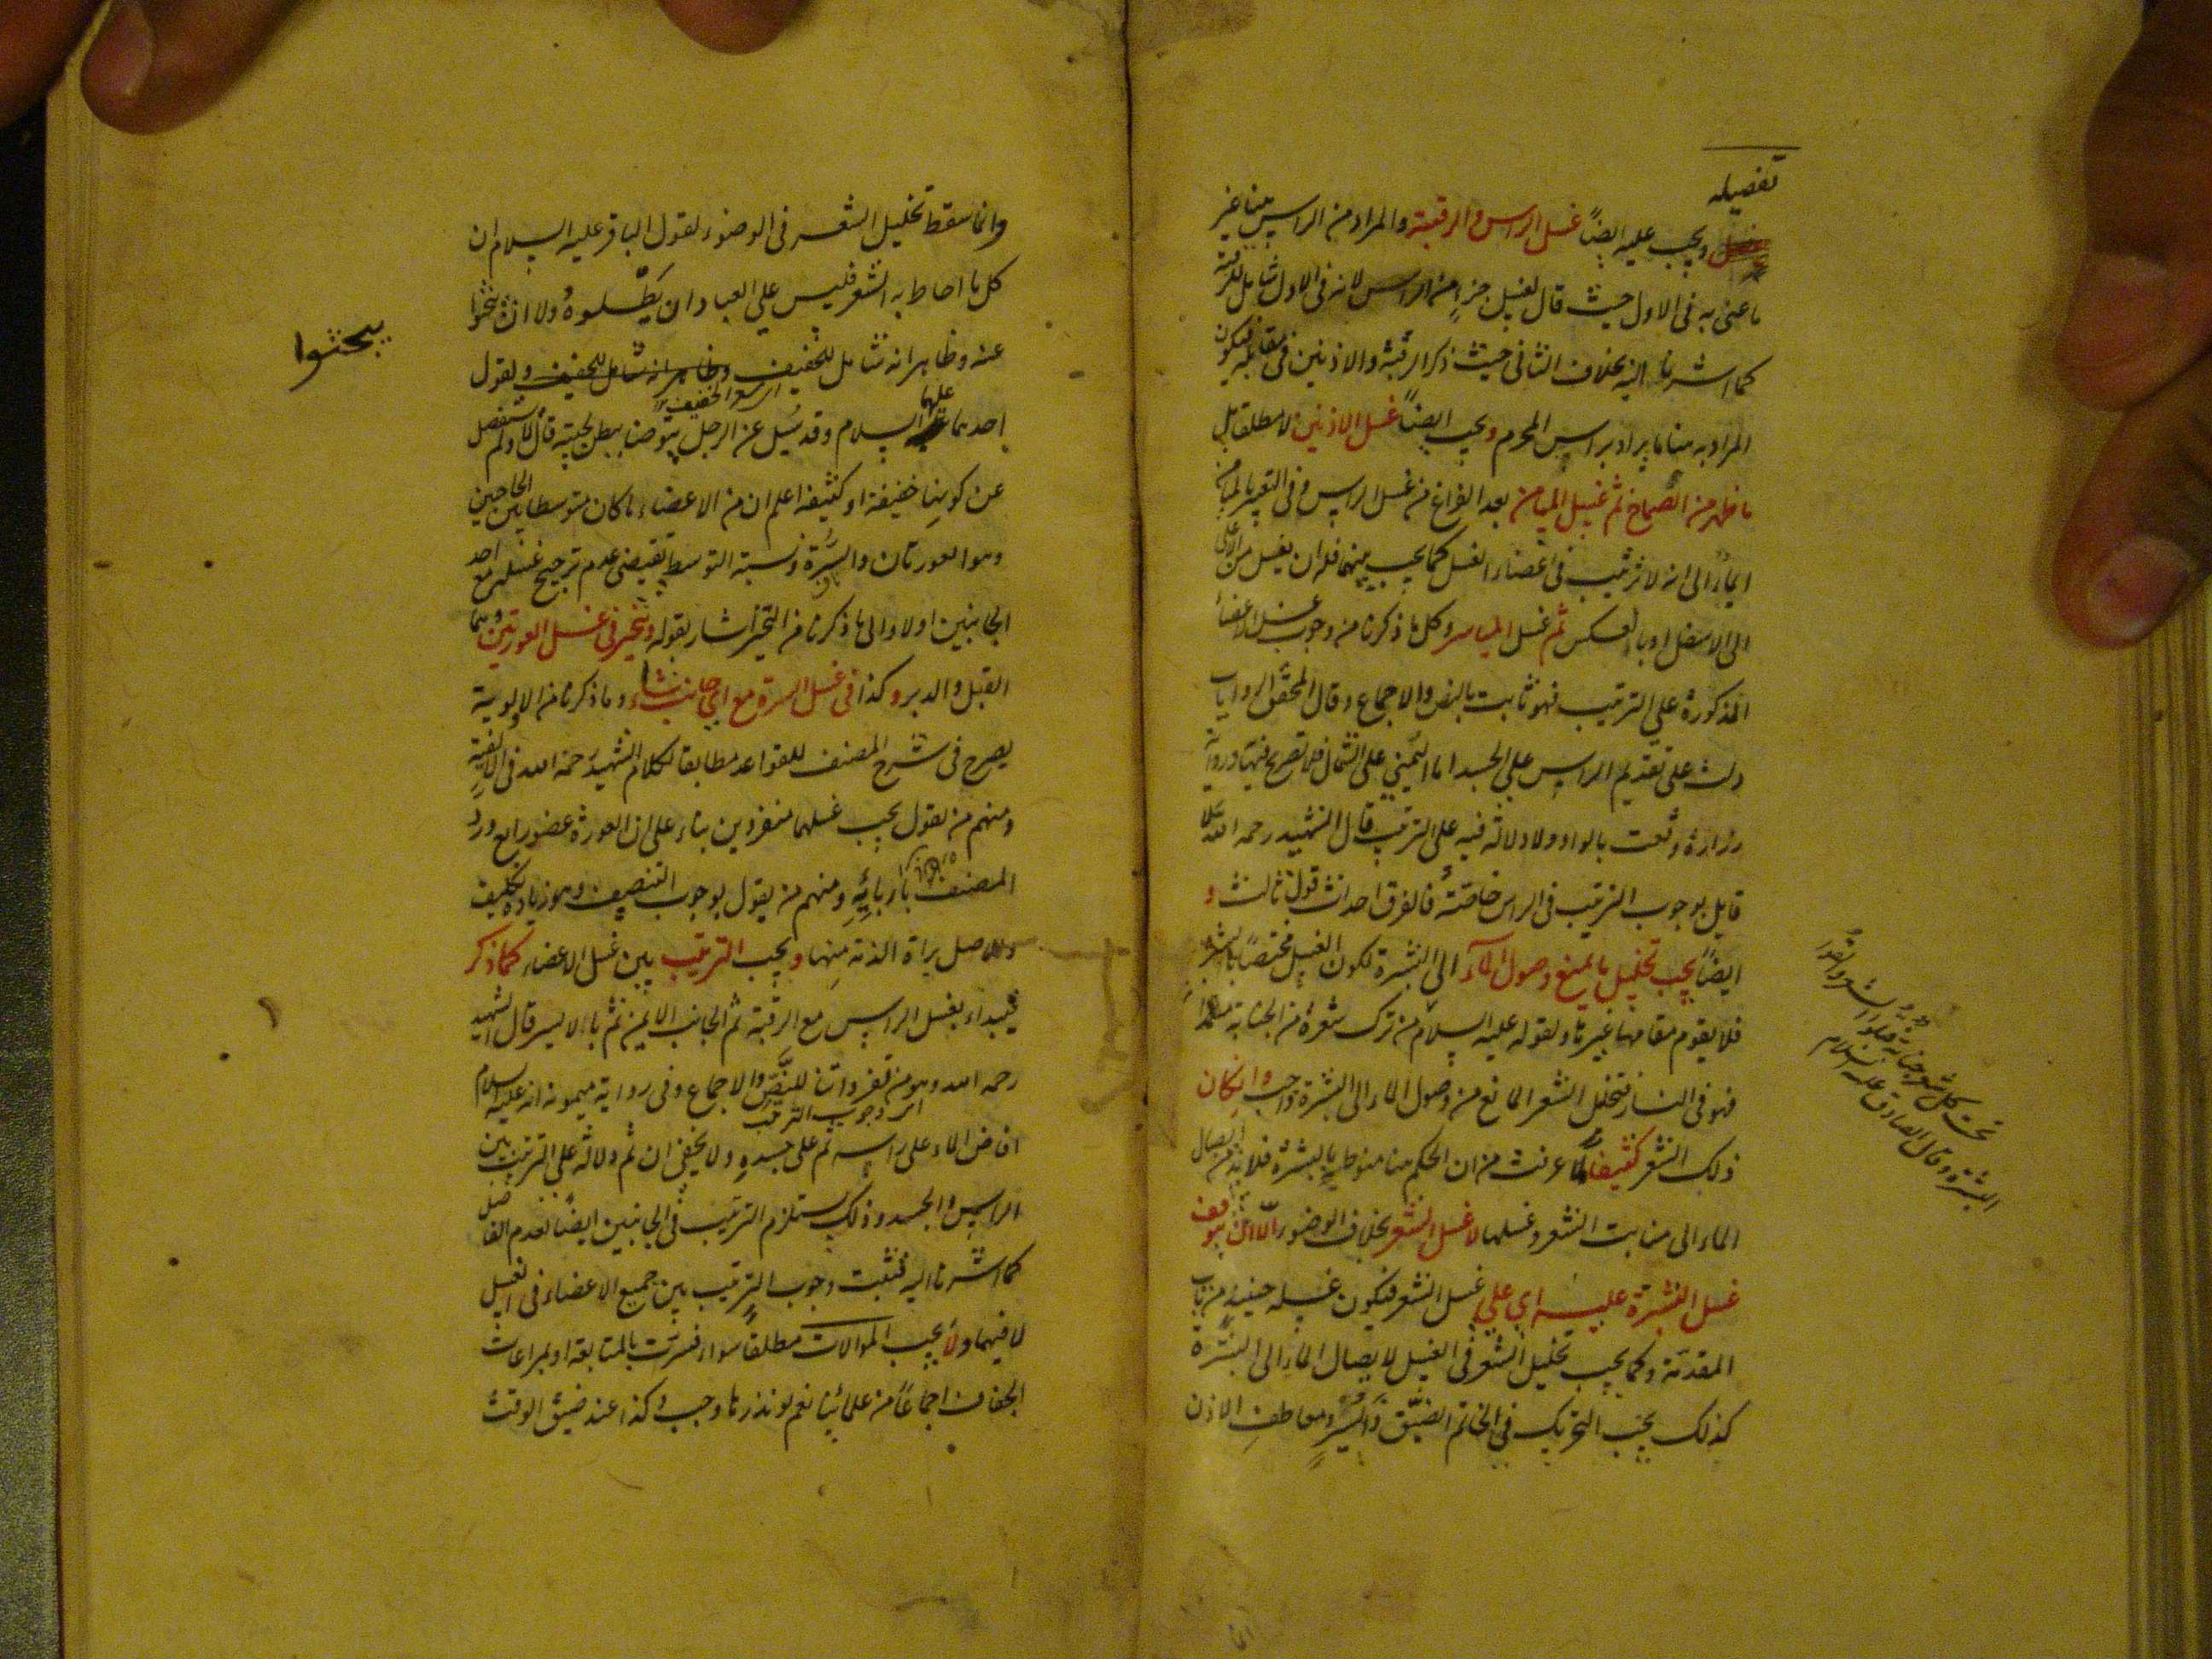 تفصيله
ويجب عليه ايضاً غسل الراس والرقبة والمراد من الراس هنا غير
ما عنى به فى الاول حيث قال لغسل جزء من الراس لانه فى الاول شامل للرقبة
كما اشرنا اليه بخلاف الثانى حيث ذكر الرقبة والاذنين فى مقابله فيكون
المراد به هنا ما يراد براس المحرم ويجب ايضاً غسل الاذنين لا مطلقا بل
ما ظهر من الصماخ ثم غسل الميامن بعد الفراغ من غسل الراس وفى التعبير بالميامن
ايماء الى انه لا ترتيب فى اعضاء الغسل كما يجب بينهما فله ان يغسل من الاعلى
الى الاسفل او بالعكس ثم غسل المياسر وكل ما ذكرنا من وجوب غسل الاعضاء
المذكورة على الترتيب فهو ثابت بالنص والاجماع وقال المحقق الروايات
دلت على تقديم الراس على الجسد اما اليمنى على الشمال فلا تصريح فيها ورواية
زرارة وقعت بالواو ولا دلالة فيه على الترتيب قال الشهيد رحمه الله لا
قايل بوجوب الترتيب فى الراس خاصة فالفرق احداث قول ثالث و
ايضاً يجب تخليل ما يمنع وصول الماء الى البشرة لكون الغسل مختصاً بالبشرة
فلا يقوم مقامها غيرها ولقوله عليه السلام من ترك شعرة من الجنابة متعمدا
فهو فى النار فتخلل الشعر المانع من وصول الماء الى البشرة واجب وان كان
ذلك الشعر كثيفا لما عرفت من ان الحكم هنا منوط بالبشرة فلا بد من ايصال
الماء الى منابت الشعر وغسلها لا غسل الشعر بخلاف الوضوء الا ان يتوقف
غسل البشرة عليه اى على غسل الشعر فيكون غسله حينئذ من باب
المقدمة وكما يجب تخليل الشعر فى الغسل لايصال الماء الى البشرة
كذلك يجب التحريك فى الخاتم الضيق والسير ومعاطف الاذن
تحت كل شعرة جنابة فبلوا الشعر وانقوا
البشرة وقال الصادق عليه السلام
وانما سقط تخليل الشعر فى الوضوء لقول الباقر عليه السلام ان
كل ما احاط به الشعر فليس على العباد ان يطلبوه ولا ان يبحثوا
يبحثوا
عنه وظاهره انه شامل للخفيف وظاهره انه شامل للخفيف ولقول
احدهما عليهما السلام وقد سئل عن الرجل يتوضا ايبطن لحيته قال لا ولم يستفصل
عن كونها خفيفة او كثيفة اعلم ان من الاعضاء ما كان متوسطا بين الجانبين
وهو العورتان والسرة ونسبة التوسط يقتضى عدم ترجيح غسله مع احد
الجانبين اولا والى ما ذكرنا من التخير اشار بقوله ويتخير فى غسل العورتين وهما
القبل والدبر وكذا فى غسل السرة مع اى جانب شاء وما ذكرنا من الاولوية
يصرح فى شرح المصنف للقواعد مطابقا لكلام الشهيد رحمة الله فى الالفية
ومنهم من يقول يجب غسلهما منفردين بناء على ان العورة عضو رابع ورد
المصنف ومنهم من يقول بوجوب التنصيف وهو زيادة تكليف
والاصل براة الذمة منها ويجب الترتيب بين غسل الاعضاء كما ذكر
فيبداء بغسل الراس مع الرقبة ثم الجانب الايمن ثم بالايسر قال الشهيد
رحمه الله وهو من تفرداتنا للنص والاجماع وفى رواية ميمونة انه عليه السلام
اى وجوب الترتيب
افاض الماء على راسه ثم على جسده ولا يخفى ان ثم دلالة على الترتيب بين
الراس والجسد وذلك يستلزم الترتيب فى الجانبين ايضا لعدم الفاصل
كما اشرنا اليه فثبت وجوب الترتيب بين جميع الاعضاء فى الغسل
لا فيهما ولا يجب الموالات مطلقاً سواء فسرت بالمتابعة او بمراعات
الجفاف اجماعاً من علمائنا نعم لو نذرها وجب وكذا عند ضيق الوقت